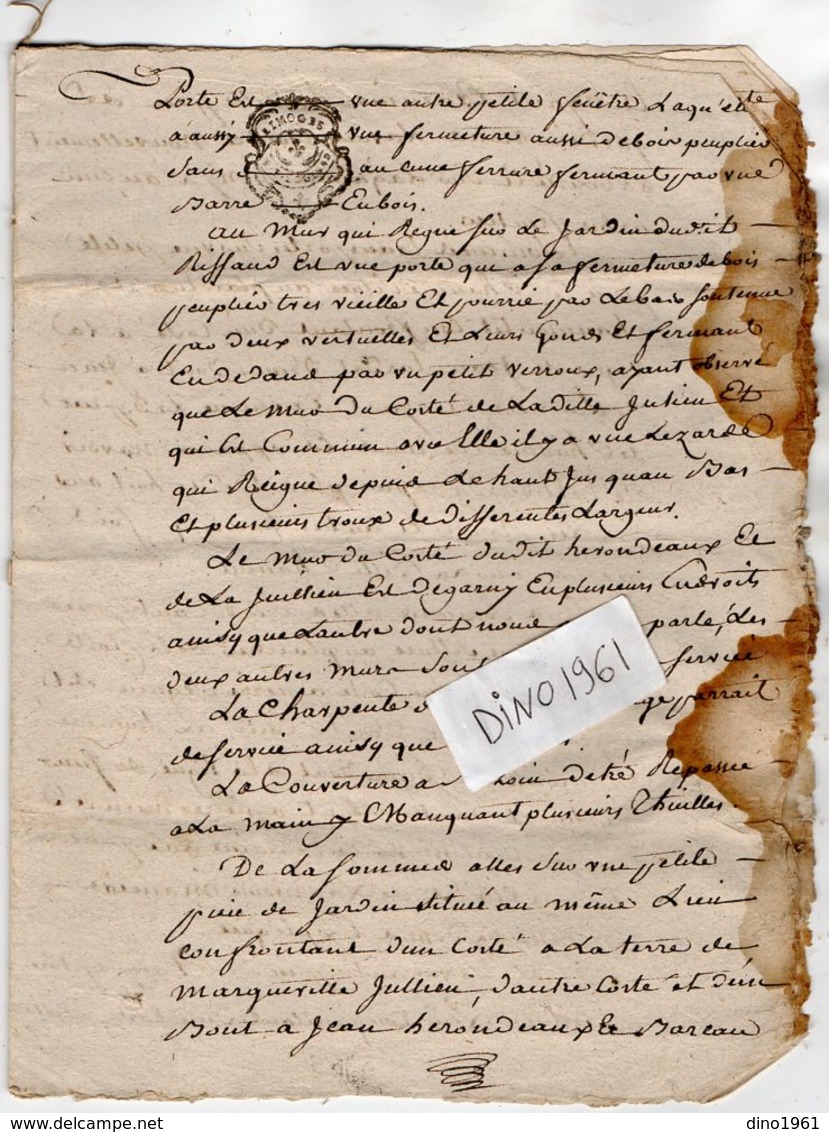 Porte Est une autre petite fenêtre Laquelle
a aussy une fermeture aussi de bois peuplier
sans aucune ferrure fermant par une
Barre En bois.
LIMOGES
au Mur qui Regne sur Le Jardin dudit
Riffaud Est une porte qui a sa fermeture de bois
peuplier tres vieille Et pourrie par Le bas soutenue
par deux vertuelles Et Leurs Gonds Et fermant
En dedans par un petit verroux, ayant observé
que Le Mur du Corté de Laditte Julien Et
qui Est Commun avec Elle il y a une Lezarde
qui Reigne depuis Le haut Jusquau Bas
Et plusieurs troux de differentes Largeur.
Le Mur du Corté dudit herondeaux Et
de La Juillien Est degarny En plusieurs Endroits
ainsy que Lautre dont nous parlé, Les
deux autres Murs Sont service
La Charpente parrait
de service ainsy que
La Couverture a besoin detré Repassée
a La main y Manquant plusieurs Thuilles.
De La sommes alles sur une petite
piece de Jardin située au même Lieu
confrontant dun Corté a La terre de
Margueritte Jullien, d'autre Corté et d'un
Bout a Jean herondeaux Et Bareau
DINO1961
dino1961